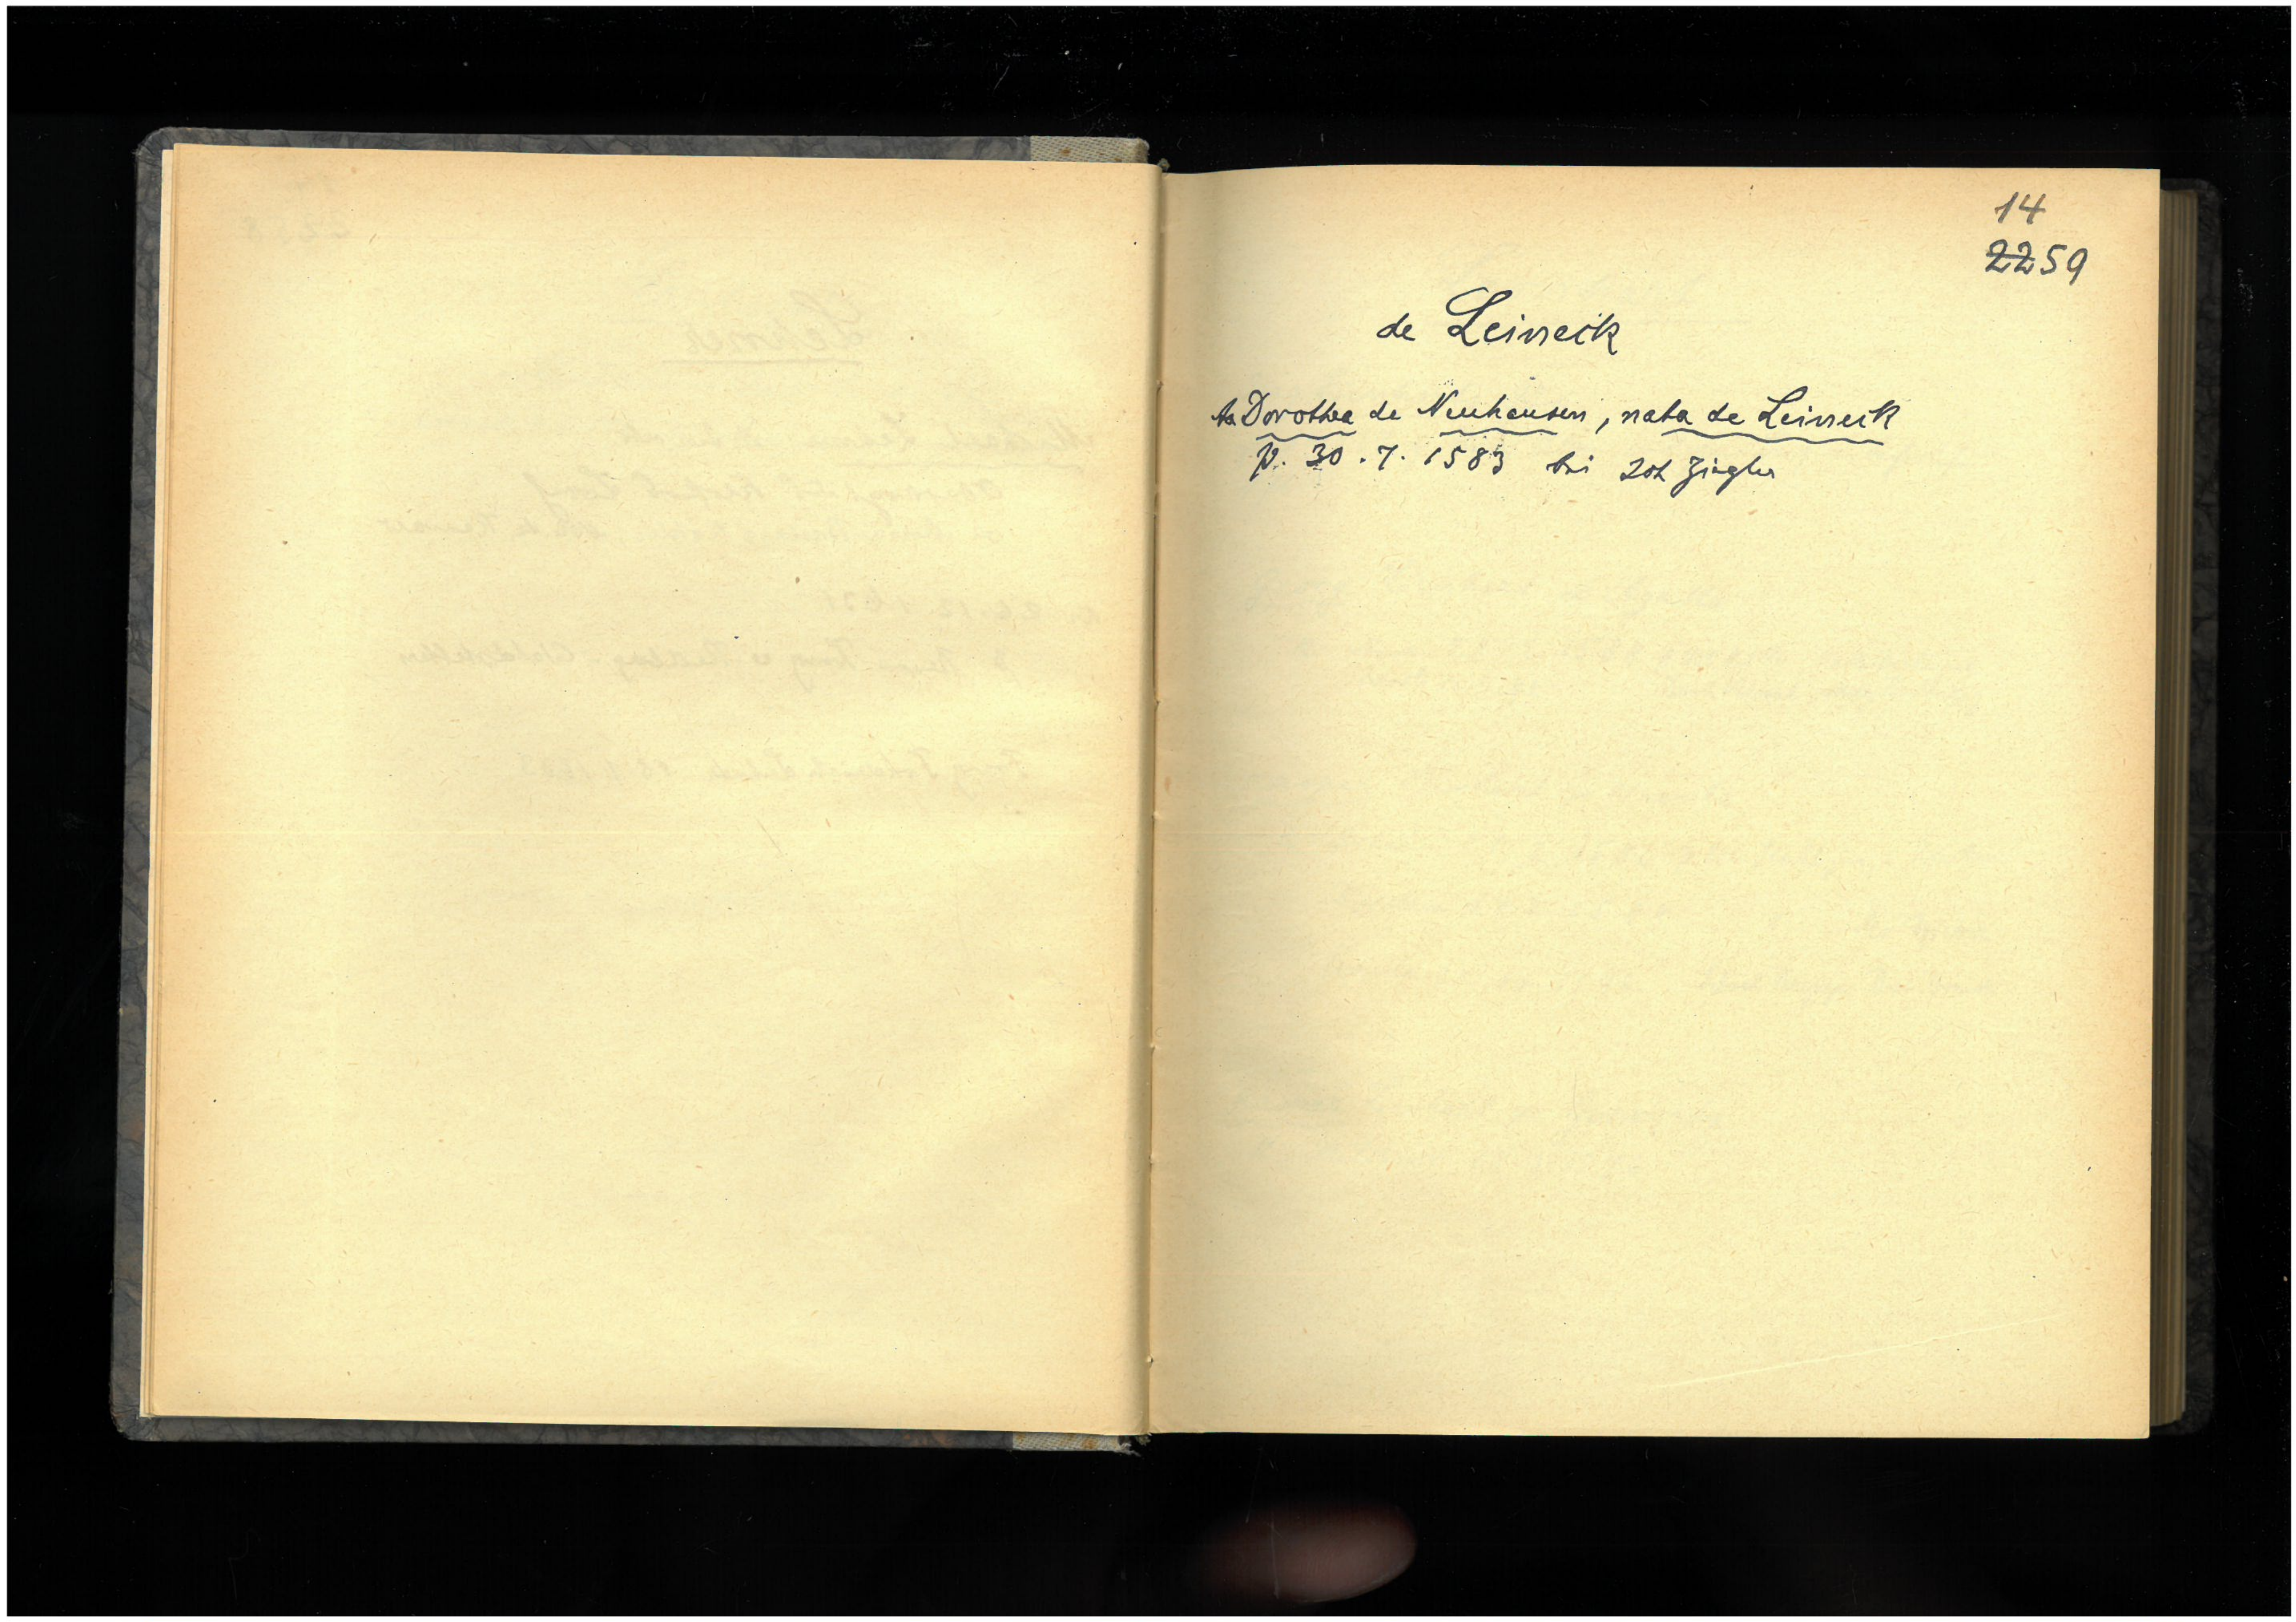 14
2259
de Leineck
Dorothea de Neuhausen, nata de Leineck
p. 30.7.1583 bei Joh Ziegler